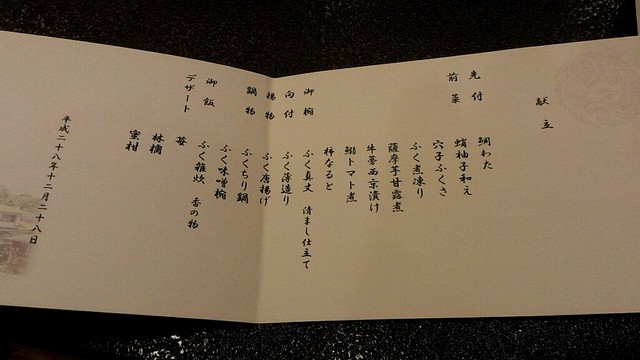 献立
先付 鯛わた
前菜 蛸柚子和え
穴子ふくさ
ふく煮凍り
薩摩芋甘露煮
牛蒡西京漬け
鰯トマト煮
柿なると
御椀 ふく真丈 清まし仕立て
向付 ふく薄造り
揚物 ふく唐揚げ
鍋物 ふくちり鍋
ふく味噌椀
御飯 ふく雑炊 香の物
デザート 苺
林檎
蜜柑
平成二十八年十二月二十八日